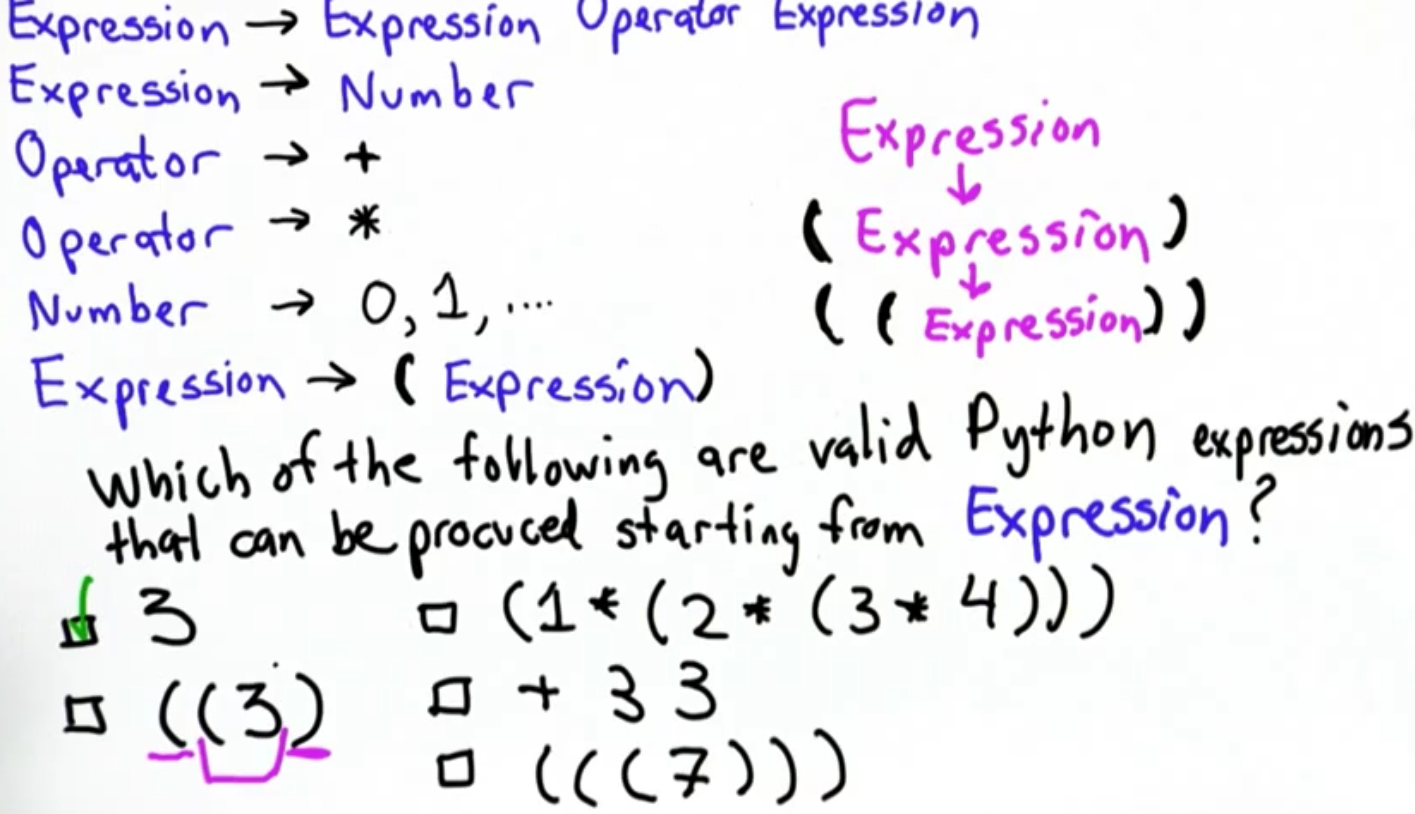 Expression → Expression Operator Expression
Expression → Number
Operator → +
Operator → *
Number → 0, 1, ....
Expression → ( Expression )
Expression
↓
( Expression )
↓
( ( Expression ) )
Which of the following are valid Python expressions
that can be procuced starting from Expression?
3
(1 * (2 * (3 * 4)))
((3)
+ 3 3
(((7)))